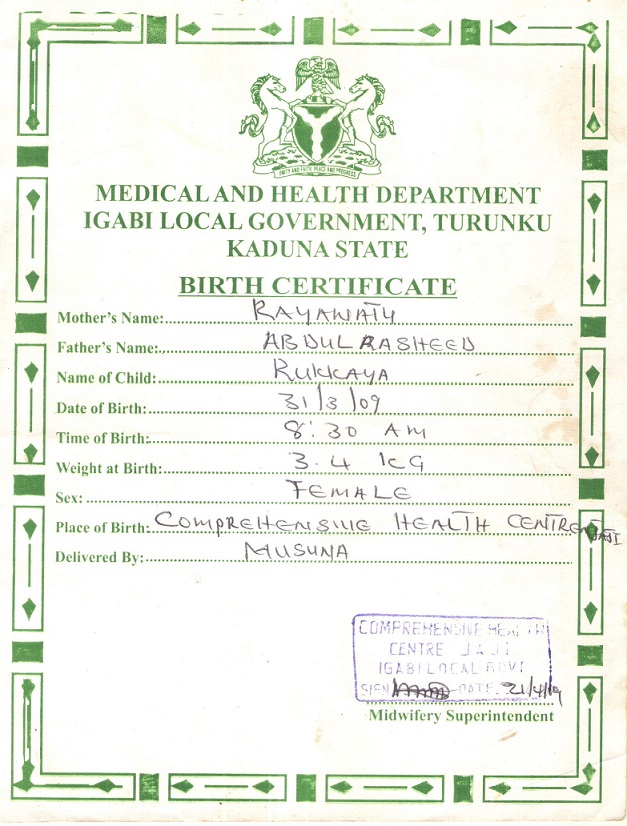 UNITY AND FAITH, PEACE AND PROGRESS
MEDICAL AND HEALTH DEPARTMENT
IGABI LOCAL GOVERNMENT, TURUNKU
KADUNA STATE
BIRTH CERTIFICATE
Mother's Name: RAYAWATU
Father's Name: ABDULRASHEED
Name of Child: RUKKAYA
Date of Birth: 31/3/09
Time of Birth: 8:30 AM
Weight at Birth: 3.4 KG
Sex: FEMALE
Place of Birth: COMPREHENSIVE HEALTH CENTRE JAJI
Delivered By: MUSUNA
COMPREHENSIVE HEALTH
CENTRE JAJI
IGABI LOCAL GOVT
SIGN DATE 21/4/09
Midwifery Superintendent